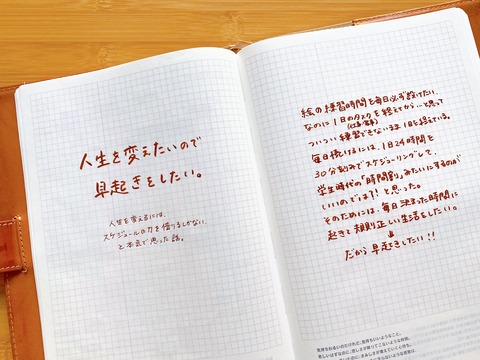 人生を変えたいので
早起きをしたい。
人生を変えるには、
スケジュールの力を借りるしかない、
と本気で思った話。
絵の練習時間を毎日必ず設けたい。
なのに1日のタスクを終えてから…と思って
(仕事・家事)
ついつい練習できないまま1日を終えている。
毎日続けるには、1日24時間を
30分刻みでスケジューリングして、
学生時代の「時間割り」みたいにするのが
いいのでは?!と思った。
そのためには、毎日決まった時間に
起きて規則正しい生活をしたい。
だから早起きしたい!!
気持ちわるいのだけれど、気持ちいいようなこと。